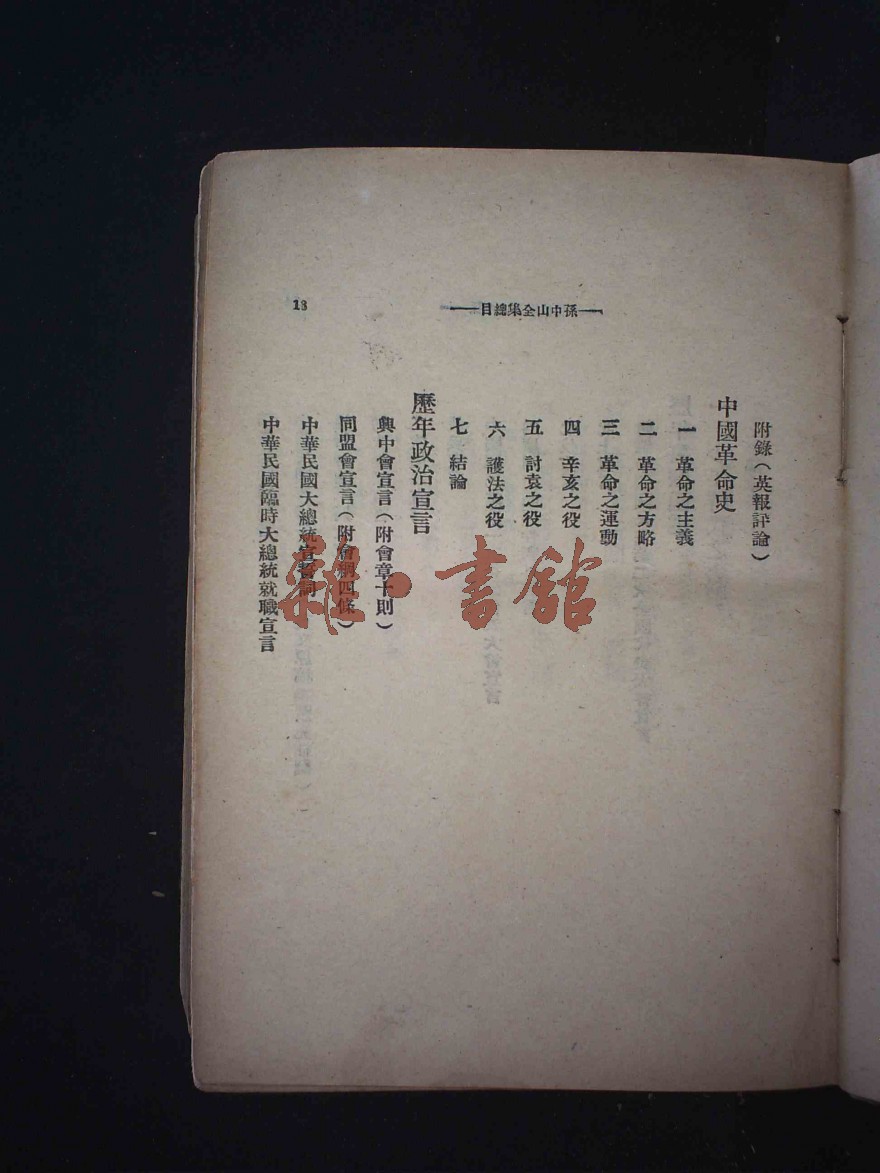 孫中山全集總目
13
附錄(英報評論)
中國革命史
一 革命之主義
二 革命之方略
三 革命之運動
四 辛亥之役
五 討袁之役
六 護法之役
七 結論
歷年政治宣言
興中會宣言(附會章十則)
同盟會宣言(附會綱四條)
中華民國大總統宣誓詞
中華民國臨時大總統就職宣言
雜·書館